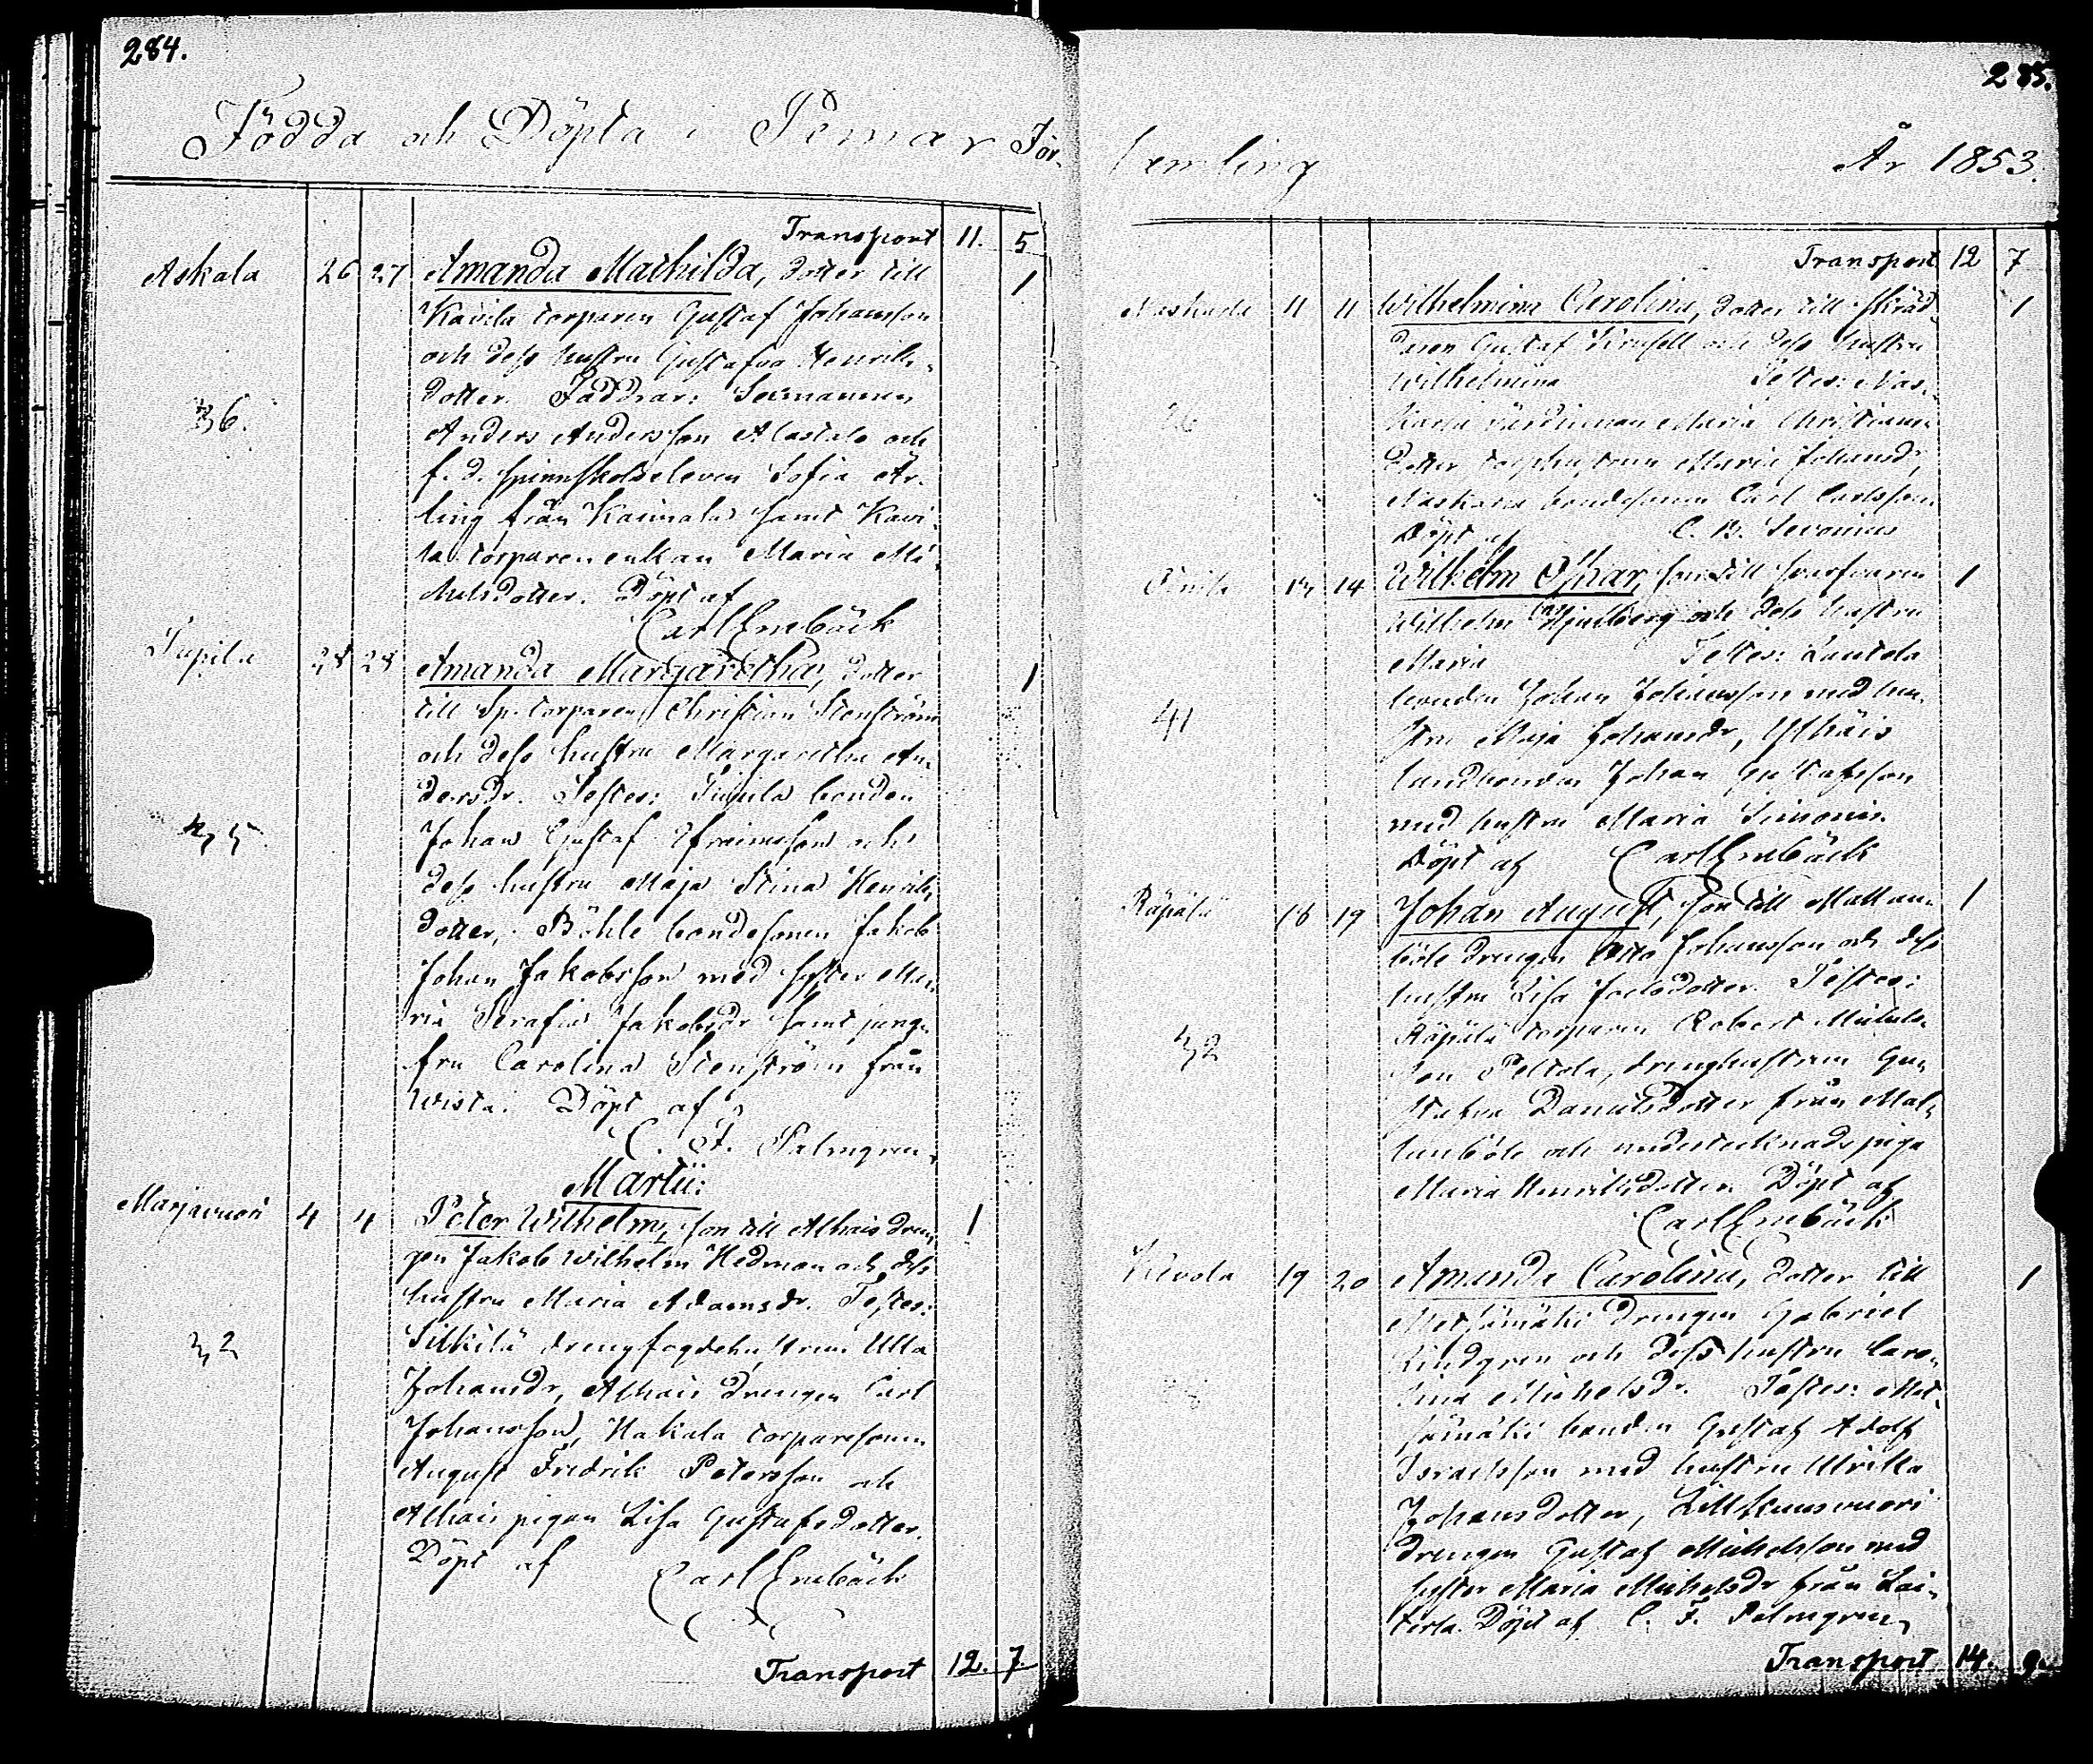 284.
Födda och Döpta i Pemar För-
Transport 11. 5
Askala 26 27 Amanda Mathilda, dotter till 1
Kavila torparen Gustaf Johansson
och dess hustru Gustafva Henriks-
dotter. Faddrar: Sexmannen
36.
Anders Andersson Alastalo och
f. d. spinnskolseleven Sofia Är-
ling från Kaimala samt Kavi-
la torpareenkan Maria Mi-
chelsdotter. Döpt af
Carl Enebäck
28 28 Amanda Margaretha, dotter 1
till Sp. torparen Christian Stenström
och dess hustru Margaretha An-
dersdr. Testes: bonden
Johan Gustaf Efraimsson och
dess hustru Maja Stina Henriks-
dotter, Böhle bondesonen Jakob
Johan Jakobsson med syster Ma-
ria Serafia Jakobsdr samt jung-
fru Carolina Stenström från
Wista. Döpt af
C. F. Palmgren.
Martii:
Marjavuori 4 4 Peter Wilhelm, son till Alhais dren- 1
gen Jakob Wilhelm Hedman och dess
hustru Maria Adamsdr. Testes:
32
Silkilä drengfogdehustrun Ulla
Johansdr, Alhais drengen Carl
Johansson, Hakala torparesonen
August Fredrik Petersson och
Alhais pigan Lisa Gustafsdotter.
Döpt af Carl Enebäck
Transport 12. 7.
285.
samling År 1853.
Transport 12 7
11 11 Wilhelmina Carolina, dotter till skräd- 1
daren Gustaf och dess hustru
Wilhelmina Testes: Nas-
26
Maria Christians-
dotter, torphustrun Maria Johansdr,
Naskarla bondesonen Carl Carlsson.
Döpt af C. R. Sevonius
13 14 Wilhelm Oskar, son till svarfvaren 1
Wilhelm och dess hustru
Maria Testes: Lautela
41
bonden Johan Johansson med hu-
stru Maja Johansdr,
bonden Johan Gustafsson
med hustru Maria Simonsdr.
Döpt af Carl Enebäck
Räpälä 18 19 Johan August, son till Mattan- 1
böle drengen Otto Johansson och dess
hustru Lisa Joelsdotter. Testes:
32
Räpälä torparen Robert Michels-
son Peltola, drenghustrun Gu-
stafva Danielsdotter från Mat-
tanböle och undertecknads piga
Maria Henriksdotter. Döpt af
Carl Enebäck
Kevola 19 20 Amanda Carolina, dotter till 1
Metsämäki drengen Gabriel
Lindgren och dess hustru Caro-
lina Michelsdr. Testes: Met-
sämäki bonden Gustaf Adolf
Israelsson med hustru Ulrika
Johansdotter, Lill Kuusvuori
drengen Gustaf Michelsson med
syster Maria Michelsdr från Loi-
terla. Döpt af C. F. Palmgren
Transport 14. 9.